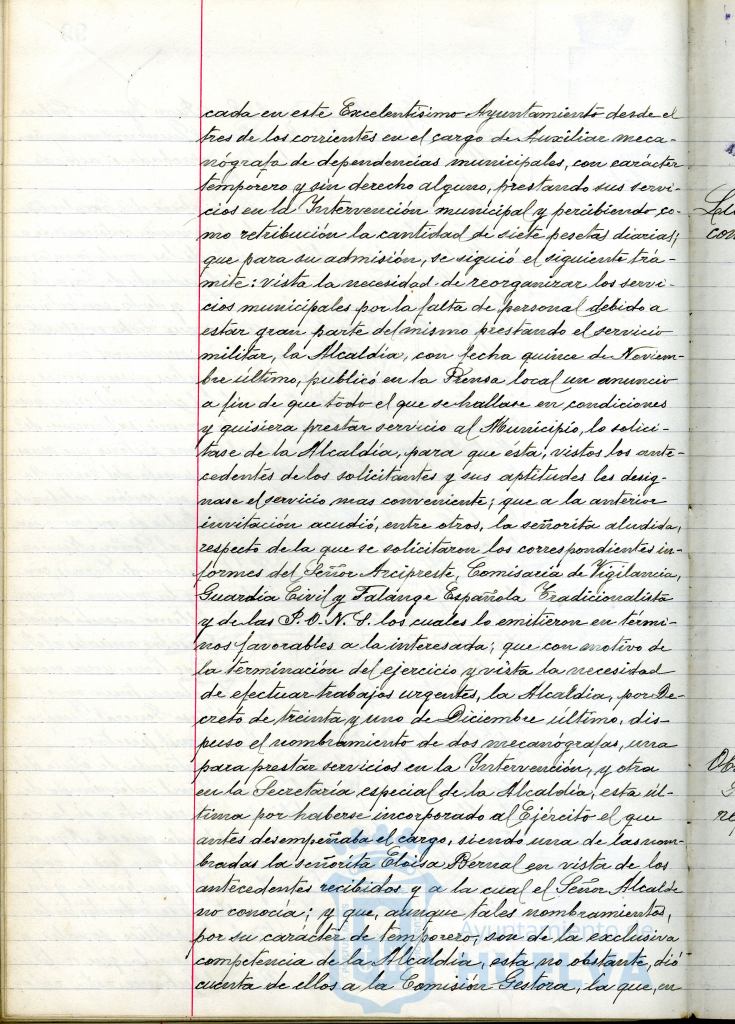 cada en este Excelentísimo Ayuntamiento desde el
tres de los corrientes en el cargo de Auxiliar meca-
nógrafa de dependencias municipales, con carácter
temporero y sin derecho alguno, prestando sus servi-
cios en la Intervención municipal y percibiendo co-
mo retribución la cantidad de siete pesetas diarias;
que para su admisión, se siguió el siguiente trá-
mite: vista la necesidad de reorganizar los servi-
cios municipales por la falta de personal debido a
estar gran parte del mismo prestando el servicio
militar, la Alcaldía, con fecha quince de Noviem-
bre último, publicó en la Prensa local un anuncio
a fin de que todo el que se hallase en condiciones
y quisiera prestar servicio al Municipio, lo solici-
tase de la Alcaldía, para que esta, vistos los ante-
cedentes de los solicitantes y sus aptitudes les desig-
nase el servicio mas conveniente; que a la anterior
invitación acudió, entre otros, la señorita aludida,
respecto de la que se solicitaron los correspondientes in-
formes del Señor Arcipreste, Comisaría de Vigilancia,
Guardia Civil y Falange Española Tradicionalista
y de las J.O.N.S. los cuales lo emitieron en térmi-
nos favorables a la interesada; que con motivo de
la terminación del ejercicio y vista la necesidad
de efectuar trabajos urgentes, la Alcaldía, por De-
creto de treinta y uno de Diciembre último, dis-
puso el nombramiento de dos mecanógrafas, una
para prestar servicios en la Intervención, y otra
en la Secretaría especial de la Alcaldía, esta úl-
tima por haberse incorporado al Ejército el que
antes desempeñaba el cargo, siendo una de las nom-
bradas la señorita Eloisa Bernal en vista de los
antecedentes recibidos y a la cual el Señor Alcalde
no conocía; y que, aunque tales nombramientos,
por su carácter de temporero, son de la exclusiva
competencia de la Alcaldía, esta no obstante, dió
cuenta de ellos a la Comisión Gestora, la que, en
Ayuntamiento de
HUELVA